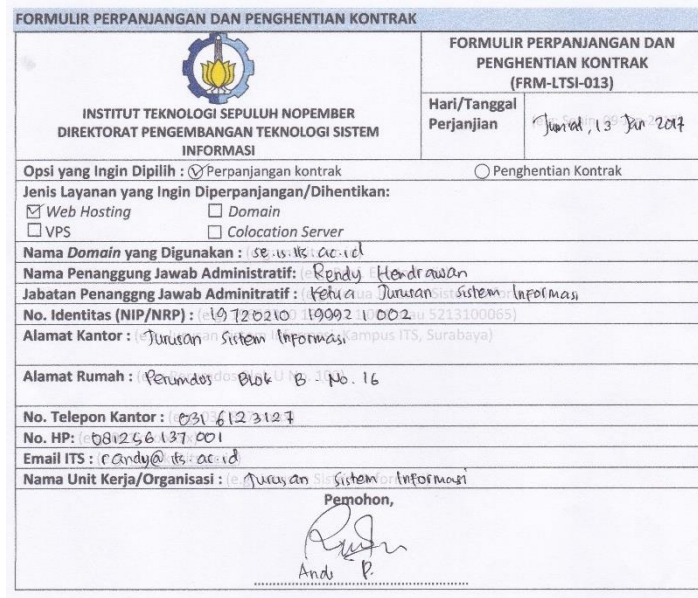 FORMULIR PERPANJANGAN DAN PENGHENTIAN KONTRAK
INSTITUT TEKNOLOGI SEPULUH NOPEMBER
DIREKTORAT PENGEMBANGAN TEKNOLOGI SISTEM
INFORMASI
FORMULIR PERPANJANGAN DAN
PENGHENTIAN KONTRAK
(FRM-LTSI-013)
Hari/Tanggal
Perjanjian
Jumat, 13 Jan 2017
Opsi yang Ingin Dipilih : Perpanjangan kontrak Penghentian Kontrak
Jenis Layanan yang Ingin Diperpanjangan/Dihentikan:
Web Hosting Domain
VPS Colocation Server
Nama Domain yang Digunakan : se.is.its.ac.id
Nama Penanggung Jawab Administratif: Rendy Hendrawan
Jabatan Penanggng Jawab Adminitratif : Ketua Jurusan Sistem Informasi
No. Identitas (NIP/NRP) : 19720210 199921002
Alamat Kantor : Jurusan Sistem Informasi, Kampus ITS, Surabaya)
Alamat Rumah : Perumdos Blok B No. 16
No. Telepon Kantor : 031 6123127
No. HP: 081256137001
Email ITS : randy@its.ac.id
Nama Unit Kerja/Organisasi : Jurusan Sistem Informasi
Pemohon,
Andi P.